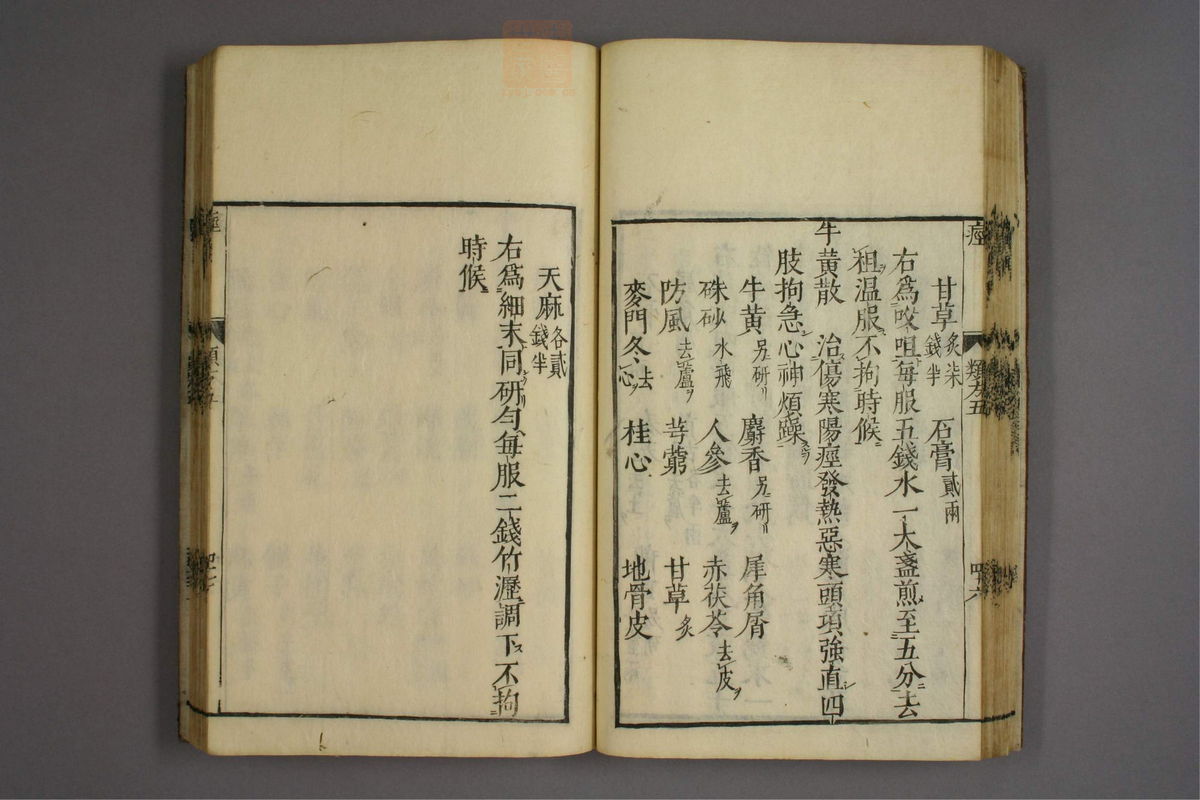 痙
類方五
四六
甘草炙柒錢半 石膏貳兩
右為㕮咀每服五錢水一大盞煎至五分去
粗温服不拘時候
牛黄散 治傷寒陽痙發熱惡寒頭項強直四
肢拘急心神煩躁
牛黄另研 麝香另研 犀角屑
硃砂水飛 人參去蘆 赤茯苓去皮
防風去蘆 芎藭 甘草炙
麥門冬去心 桂心 地骨皮
天麻各貳錢半
右為細末同研勻每服二錢竹瀝調下不拘
時候